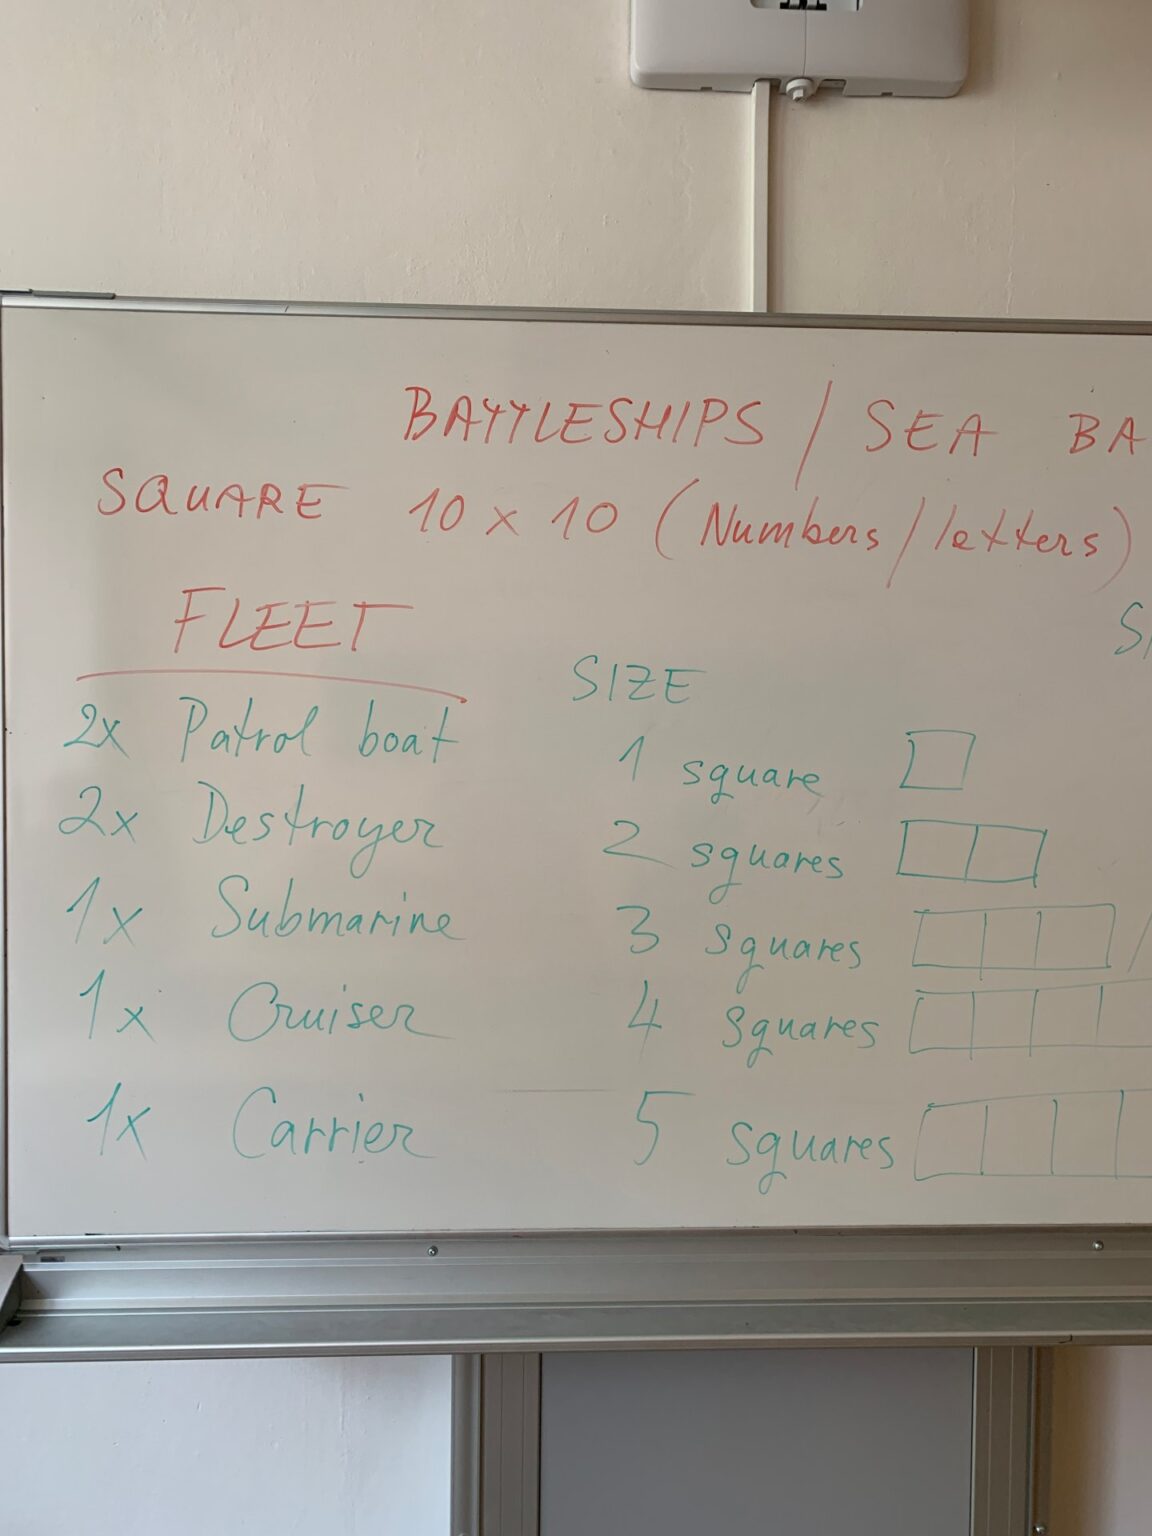 BATTLESHIPS / SEA BA
SQUARE 10 x 10 (Numbers/letters)
FLEET
SIZE
2x Patrol boat 1 square
2x Destroyer 2 squares
1x Submarine 3 squares
1x Cruiser 4 squares
1x Carrier 5 squares